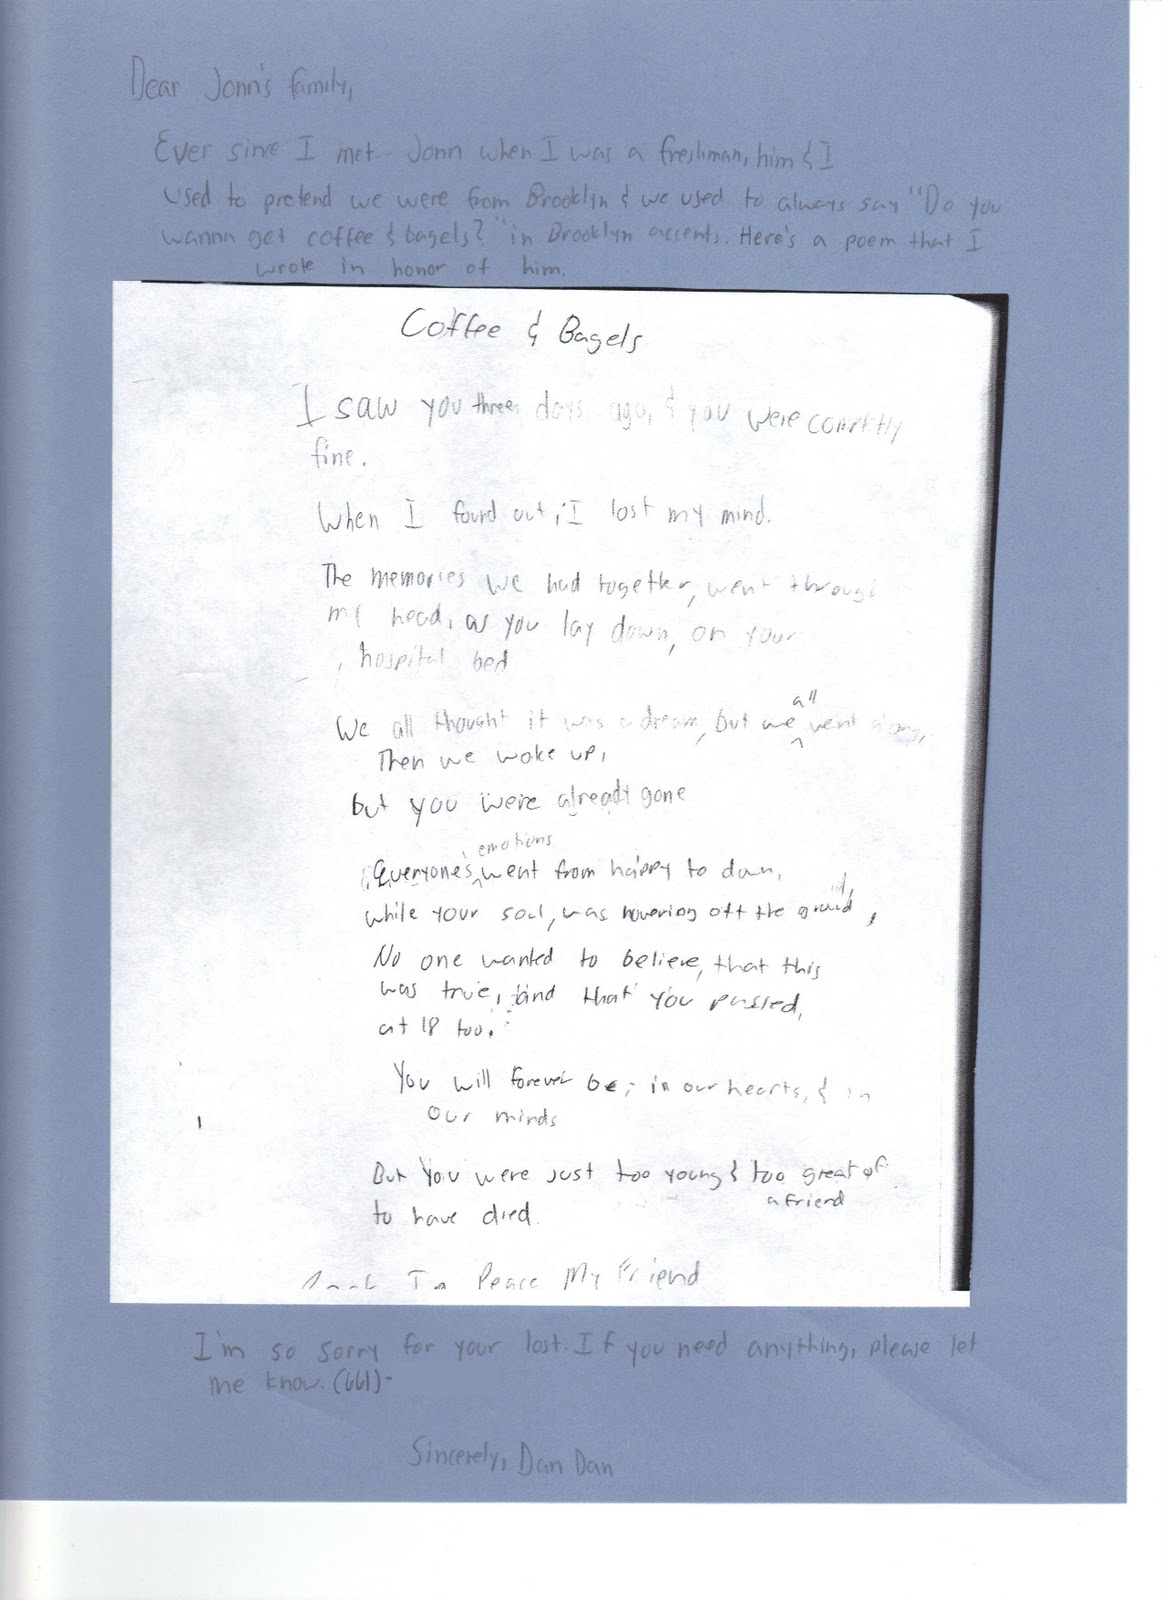 Dear Jonn's family,
Ever since I met Jonn when I was a freshman, him & I
used to pretend we were from Brooklyn & we used to always say "Do you
wanna get coffee & bagels?" in Brooklyn accents. Here's a poem that I
wrote in honor of him.
Coffee & Bagels
I saw you three days ago, & you were
fine.
When I found out, I lost my mind.
The memories we had together, went through
my head, as you lay down, on your
hospital bed
We all thought it was a dream, but we all went along,
Then we woke up,
but you were already gone
Everyone's emotions went from happy to down,
while your soul, was hovering off the ground,
No one wanted to believe, that this
was true, and that you passed,
at 18 too.
You will forever be, in our hearts, & in
our minds
But you were just too young & too great of
a friend
to have died.
In Peace My Friend
I'm so sorry for your lost. If you need anything, please let
me know. (661)-
Sincerely, Dan Dan